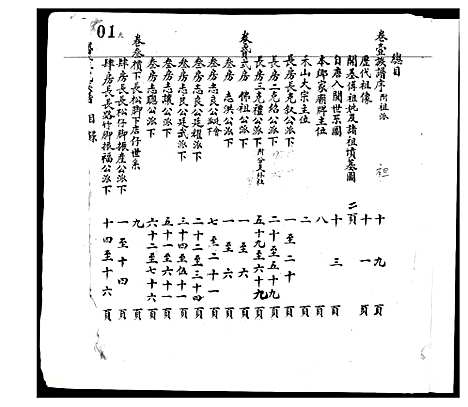 01
總目
卷壹族譜序 附祖派 十九頁
歷代祖像 十一頁
開基傳祖地及諸祖墳墓圖 二頁
自唐入閩世系圖 十三頁
本鄉家廟牌主位 八頁
禾山大宗主位 二頁
長房長克敘公派下 一至二十頁
長房二克紹公派下 二十至五十九頁
長房三克禮公派下 五十九至六十九頁
卷貳貳房 佛祖公派下 一至六頁
叁房 志洪公派下 一至六頁
叁房志良公 七至二十一頁
叁房志良公廷耀派下 二十二至三十四頁
叁房志良公廷武派下 三十四至伍十一頁
叁房志讓公派下 五十一至六十二頁
叁房志聰公派下 六十二至七十六頁
卷叁 下長松腳下店仔世系 九頁
肆房長長松仔腳振產公派下 一至十四頁
肆房長長路竹腳振福公派下 十四至十六頁
目錄